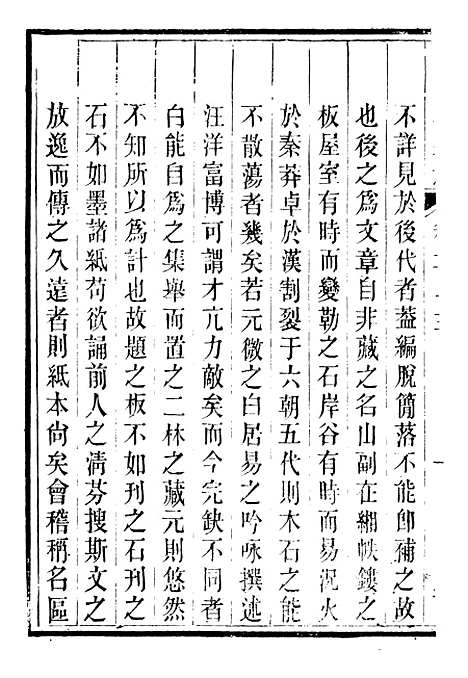 不詳見於後代者葢編脫簡落不能卽補之故
也後之爲文章自非藏之名山副在緗帙鏤之
板屋室有時而變勒之石岸谷有時而易況火
於秦莽卓於漢割裂于六朝五代則木石之能
不散蕩者幾矣若元微之白居易之吟咏撰述
汪洋富博可謂才亢力敵矣而今完缺不同者
白能自爲之集舉而置之二林之藏元則悠然
不知所以爲計也故題之板不如刊之石刊之
石不如墨諸紙苟欲誦前人之淸芬搜斯文之
放逸而傳之久遠者則紙本尙矣會稽稱名區